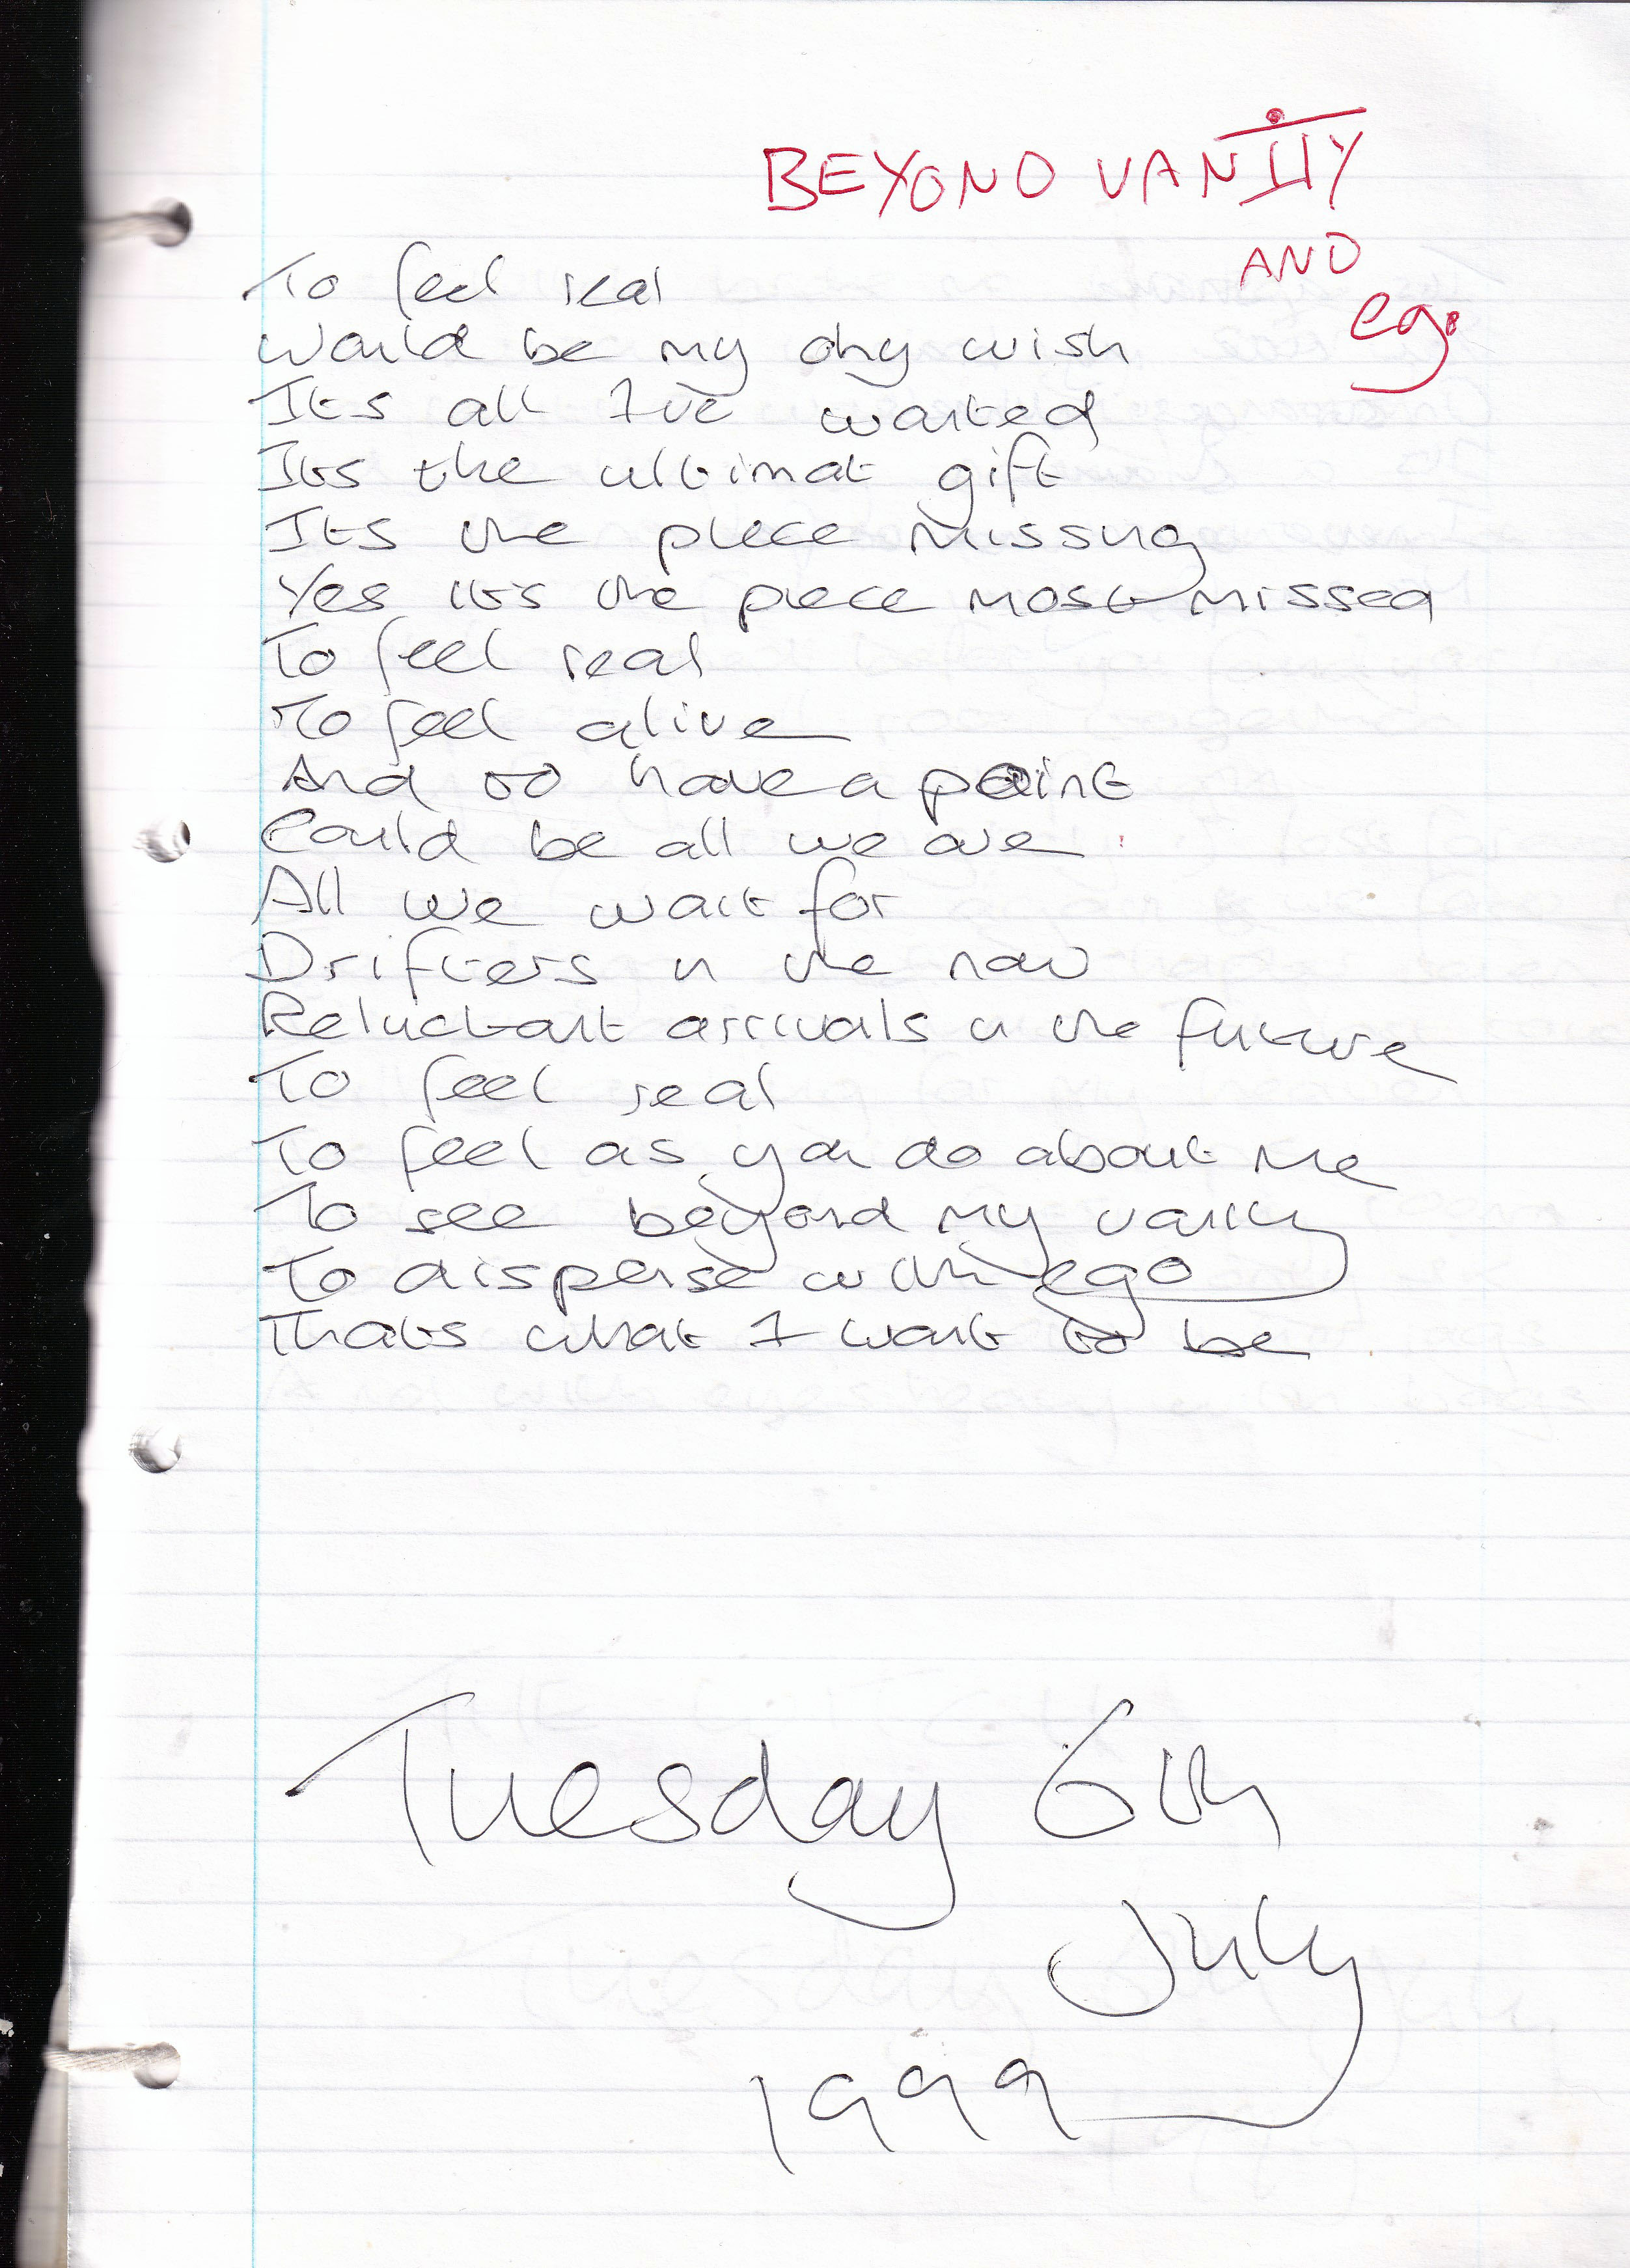 BEYOND VANITY
AND
ego
To feel real
Would be my only wish
Its all I've wanted
Its the ultimate gift
Its the piece missing
Yes it's the piece most missed
To feel real
To feel alive
And to have a point
Could be all we are
All we wait for
Drifters in the now
Reluctant arrivals in the future
To feel real
To feel as you do about me
To see beyond my vanity
To dispense with ego
Thats what I want to be
Tuesday 6th
July
1999